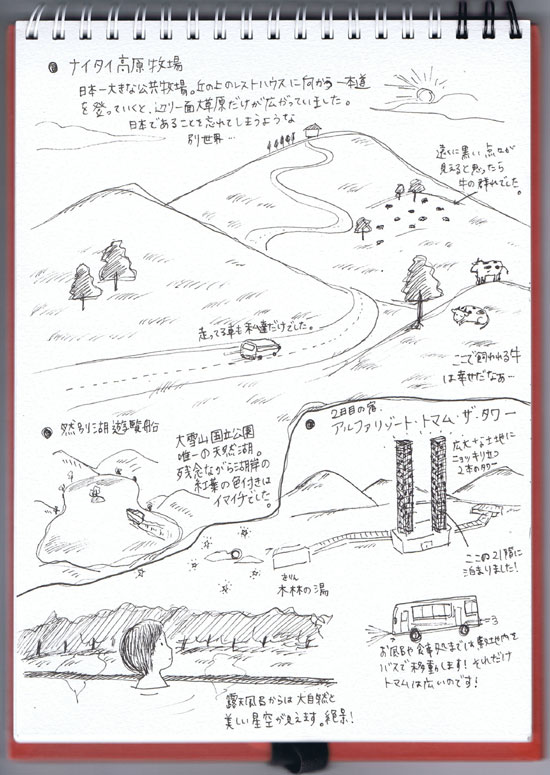 ● ナイタイ高原牧場
日本一大きな公共牧場。丘の上のレストハウスに向かう一本道
を登っていくと、辺り一面大草原だけが広がっていました。
日本であることを忘れてしまうような
別世界…
遠くに黒い点々が
見えると思ったら
牛の群れでした。
走ってる車も私達だけでした。
ここで飼われる牛
は幸せだなぁ…
● 然別湖遊覧船
大雪山国立公園
唯一の天然湖。
残念ながら湖岸の
紅葉の色付きは
イマイチでした。
● 2日目の宿
アルファリゾート・トマム・ザ・タワー
広大な土地に
ニョッキリ
2本のタワー
ここの21階に
泊まりました!
きりん
木林の湯
お風呂や食事処までは敷地内を
バスで移動します!それだけ
トマムは広いのです!
露天風呂からは大自然と
美しい星空が見えます。絶景!